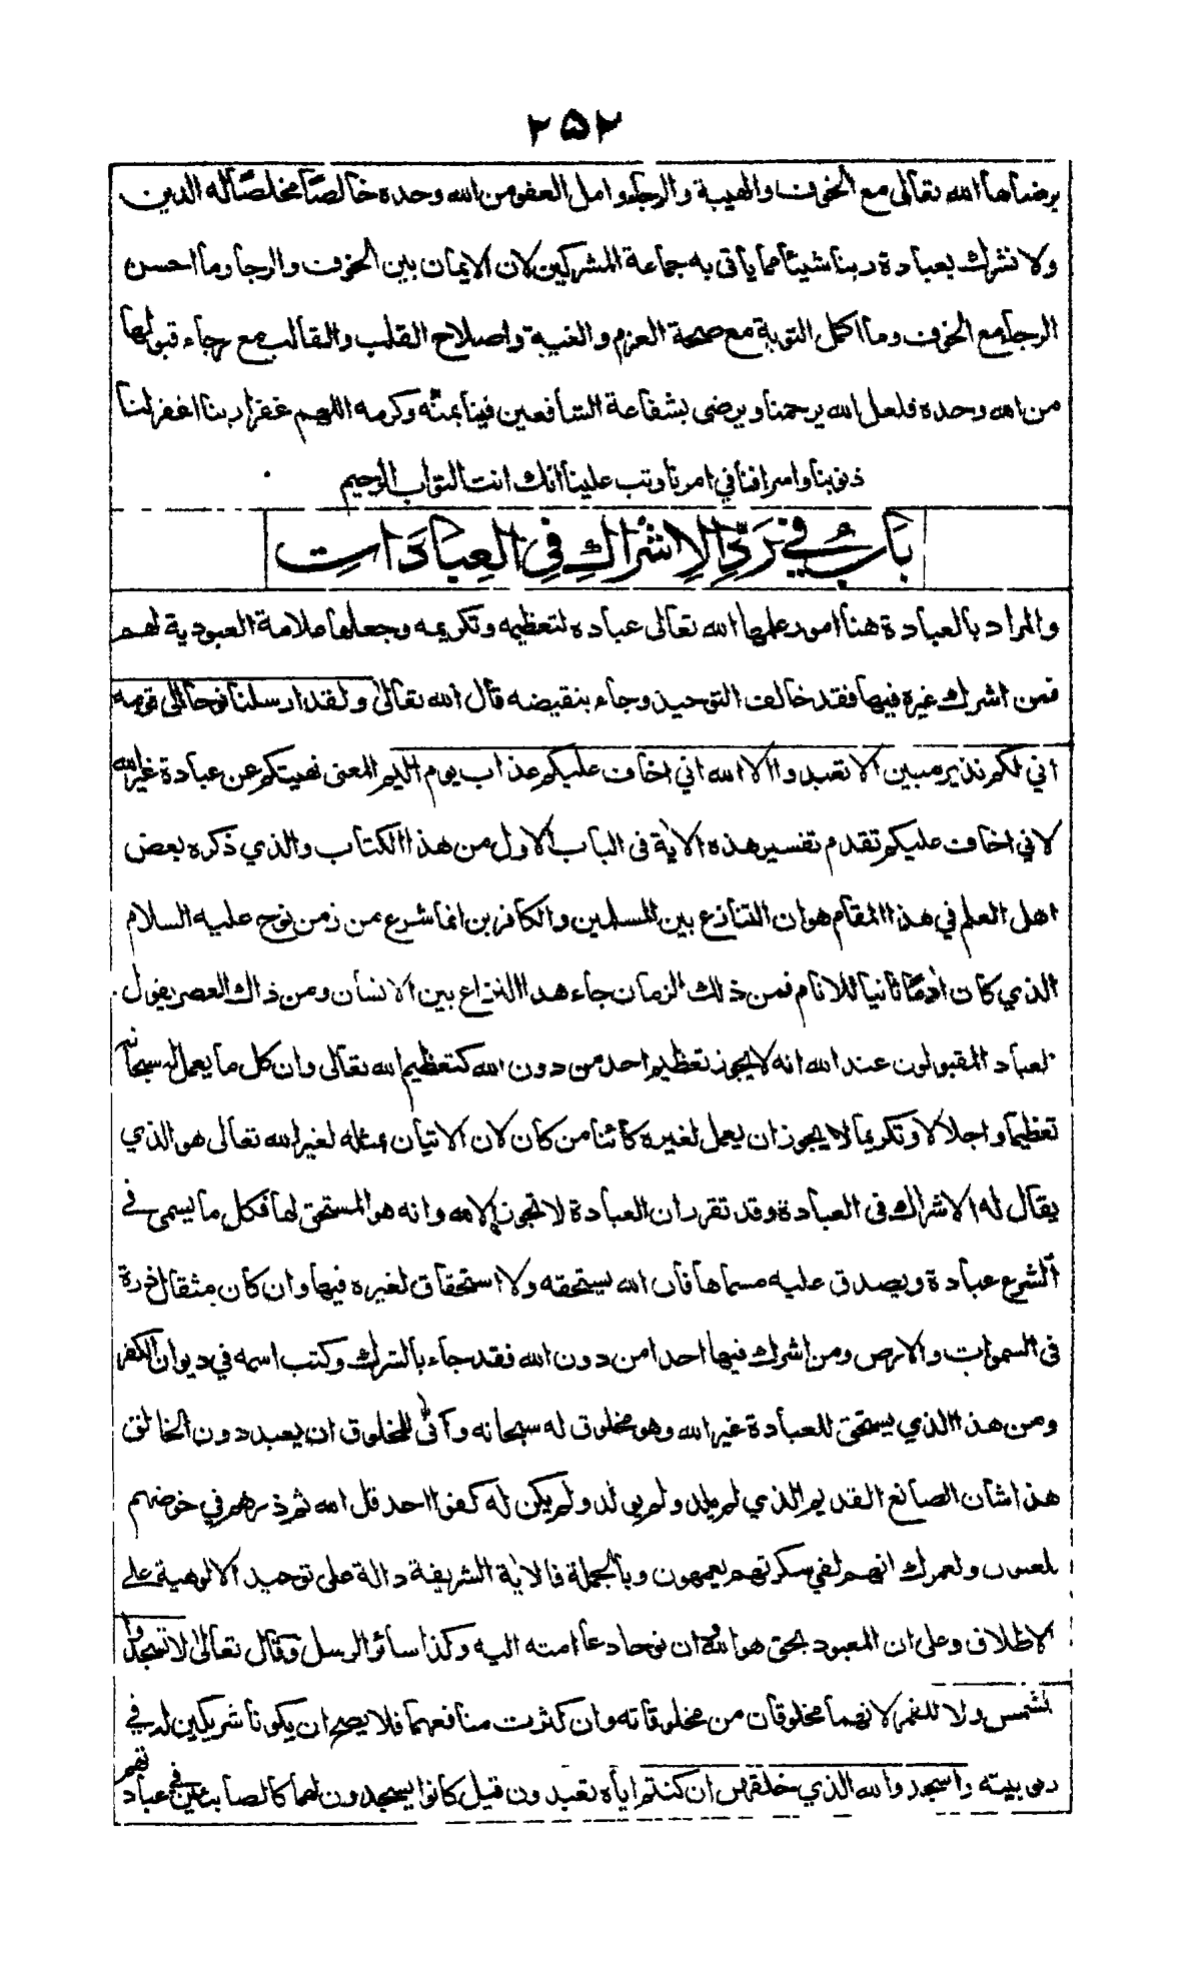 ٢٥٢
يرضاها الله تعالى مع الخوف والهيبة والرجاء وامل العفو من الله وحده خالصًا مخلصًا له الدين
ولا نشرك بعبادة ربنا شيئا مما ياتى به جماعة المشركين لان الايمان بين الخوف والرجا وما احسن
الرجا مع الخوف وما اكمل التوبة مع صحة العزم والغيبة واصلاح القلب والقالب مع رجاء قبولها
من الله وحده فلعل الله يرحمنا ويرضى بشفاعة الشافعين فينا بمنّه وكرمه اللهم غفرا ربنا اغفر لنا
ذنوبنا واسرافنا في امرنا وتب علينا انك انت التواب الرحيم
بَابٌ في رَدِّ الاِشْرَاكِ فِى العِبَادَاتِ
والمراد بالعبادة هنا امور علمها الله تعالى عباده لتعظيمه وتكريمه وجعلها علامة العبودية لهم
فمن اشرك غيره فيها فقد خالف التوحيد وجاء بنقيضه قال الله تعالى ولقد ارسلنا نوحا الى قومه
اني لكم نذير مبين الا تعبدوا الا الله اني اخاف عليكم عذاب يوم اليم المعنى نهيتكم عن عبادة غير الله
لاني اخاف عليكم تقدم تفسير هذه الاية فى الباب الاول من هذا الكتاب والذي ذكره بعض
اهل العلم في هذا المقام هو ان التنازع بين المسلمين والكافرين انما شرع من زمن نوح عليه السلام
الذي كان اٰدمًا ثانيا للانام فمن ذلك الزمان جاء هذا النزاع بين الانسان ومن ذاك العصر يقول
لعباد المقبولون عند الله انه لا يجوز تعظيم احد من دون الله كتعظيم الله تعالى وان كل ما يعمل له سبحانه
تعظيما واجلالا وتكريما لا يجوز ان يعمل لغيره كائنا من كان لان الاتيان بمثله لغير الله تعالى هو الذي
يقال له الاشراك فى العبادة وقد تقرر ان العبادة لا تجوز الا لله وانه هو المستحق لها فكل ما يسمى في
الشرع عبادة ويصدق عليه مسماها فان الله يستحقه ولا استحقاق لغيره فيها وان كان مثقال ذرة
فى السموات والارض ومن اشرك فيها احدا من دون الله فقد جاء بالشرك وكتب اسمه في ديوان الكفر
ومن هذا الذي يستحق للعبادة غير الله وهو مخلوق له سبحانه وأنّى للمخلوق ان يعبد دون الخالق
هذا شان الصانع القديم الذي لم يلد ولم يولد ولم يكن له كفوا احد قل الله ثم ذرهم في خوضهم
يلعبون ولعمرك انهم لفي سكرتهم يعمهون وبالجملة فالاية الشريفة دالة على توحيد الالوهية على
الاطلاق وعلى ان المعبود بحق هو الله وان نوحا دعا امته اليه وكذا سائر الرسل وقال تعالى لا تسجدوا
لشمس ولا للقمر لانهما مخلوقان من مخلوقاته وان كثرت منافعهما فلا يصح ان يكونا شريكين له في
ربوبيته واسجدوا لله الذي خلقهن ان كنتم اياه تعبدون قيل كانوا يسجدون لهما كالصابئين في عبادتهم